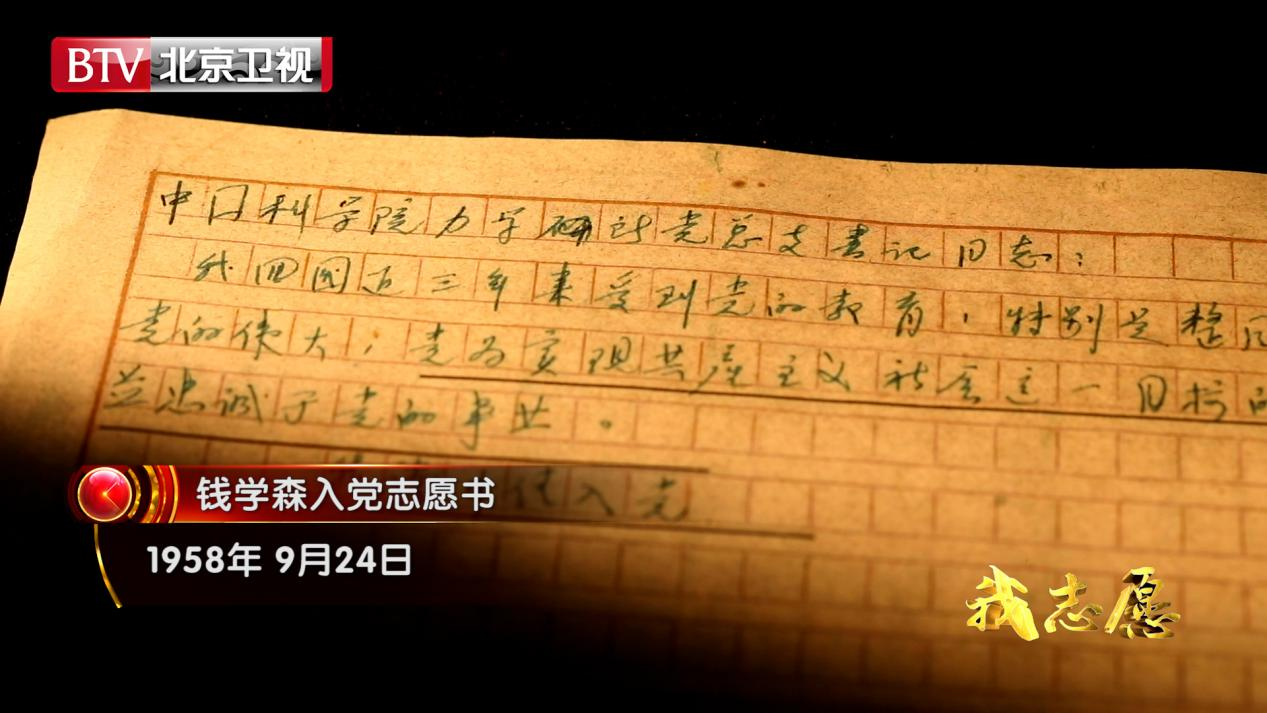 BTV 北京卫视
中国科学院力学研究所党总支书记同志：
我回国近三年来受到党的教育，特别是整风
党的伟大；党为实现共产主义社会这一目标的
并忠诚于党的事业。
入党
钱学森入党志愿书
1958年 9月24日
我志愿